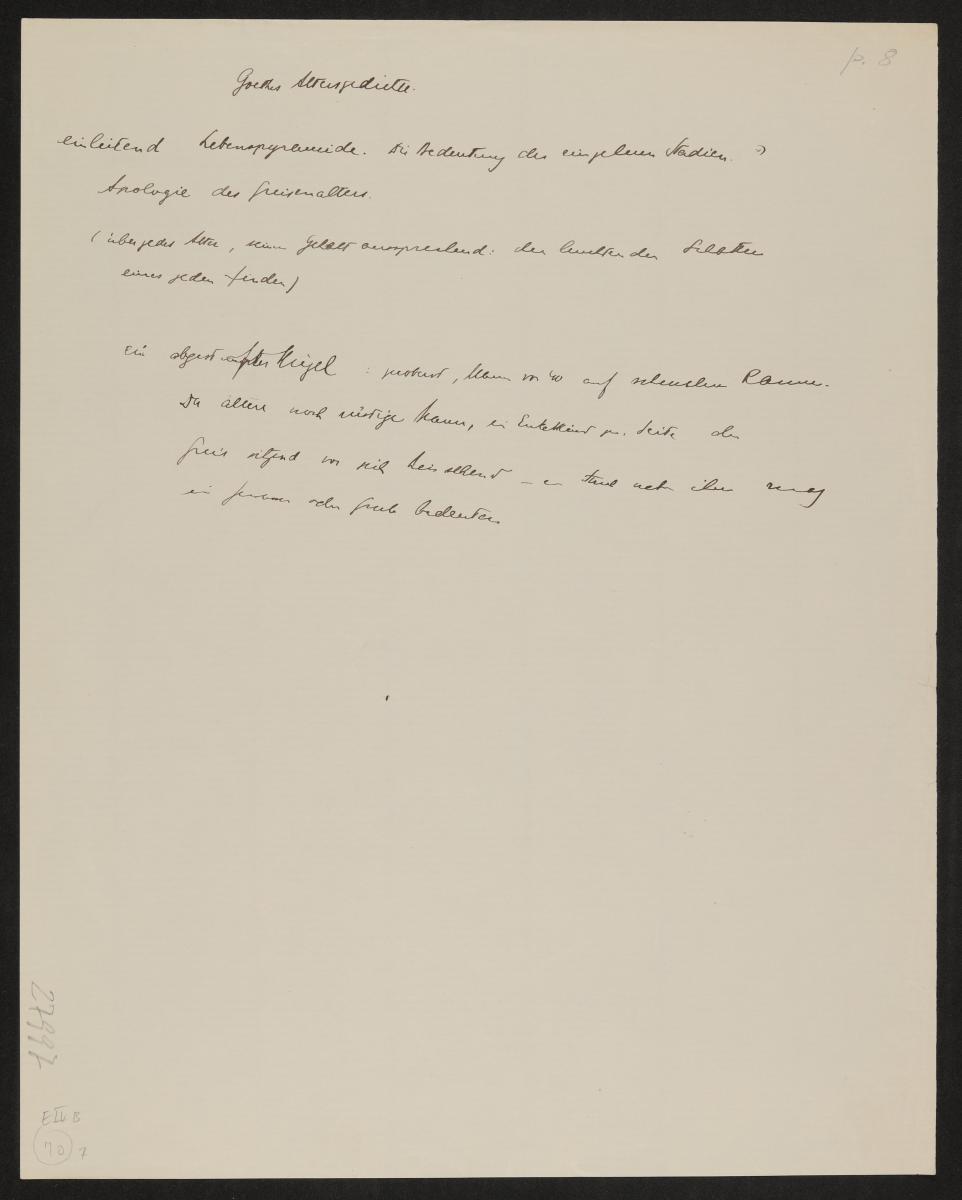 p. 8
Goethes Altersgedichte.
einleitend Lebenspyramide. Die Bedeutung der einzelnen Stadien.
Apologie des Greisenalters.
(über jedes Alter, seinen Gehalt aussprechend: den leuchtenden Schatten
eines jeden finden)
ein abgestumpfter Kegel : zuoberst, Mann von 40 auf schmalem Raum.
Der ältere noch rüstige Mann, ein Enkelkind zur Seite der
Greis sitzend vor sich hinsehend – ihm mag
ein oder Grab bedeuten
27997
E IV B
70 7